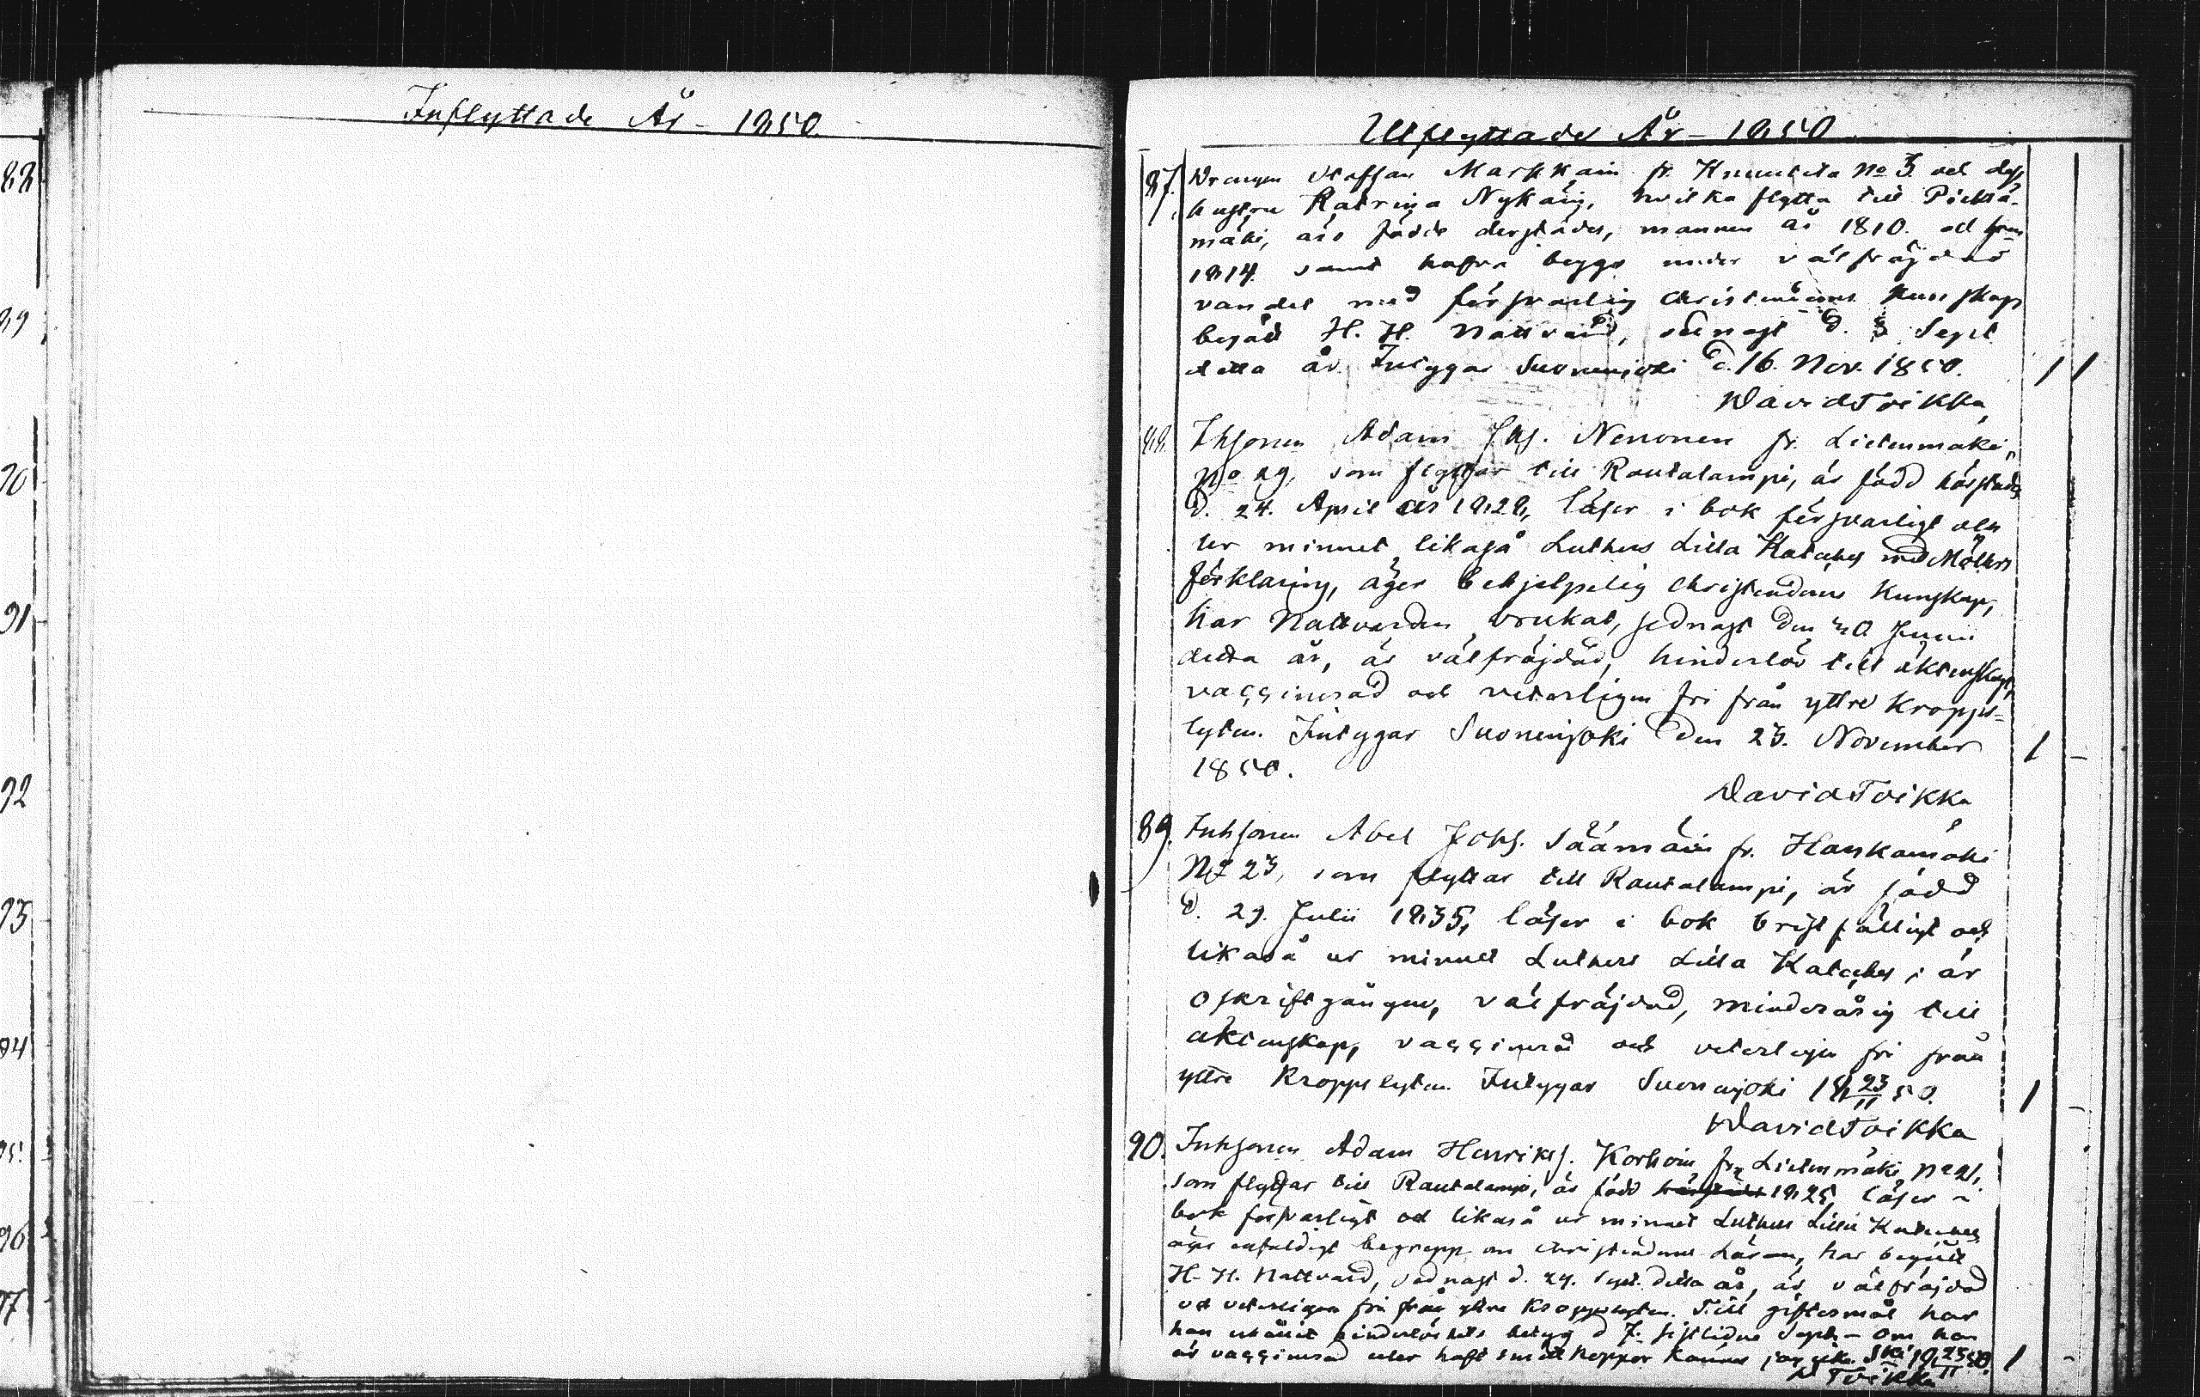 Inflyttade År - 1850.
88
89
90
91
92
93
94
95.
96
97
Utflyttade År - 1850
87. Drängen Staffan Markkain fr. No 3. och dess
hustru Katrina Nykäin, hvilka flytta till Pieksä-
mäki, äro födde derstädes, mannen år 1810. och hon
1814. samt hafva begge under välfräjdad
vandel med försvarlig Christendoms Kunskap
begått H. H. Nattvard, sednast d. 8 Sept
detta år. Intygar Suonenjoki d. 16. Nov. 1850. 1 1
David Toikka
88. Ihysonen Adam Joh. Nenonen fr. Lietenmäki
No 29, som flyttar till Rautalampi, är född härstädes
d. 24. April år 1828, läser i bok försvarligt och
ur minnet likaså Luthers Lilla Kateches med Möllers
förklaring, äger behjelpelig Christendoms Kunskap,
har Nattvarden brukat, sednast den 20 Junii
detta år, är välfräjdad, hinderlös till äktenskap,
vaccinerad och veterligen fri från yttre kropps-
lyten. Intygar Suonenjoki den 23. November 1 -
1850.
David Toikka
89. Inhysonen Abel Johs. Säämäin fr. Hankamäki
No 23, som flyttar till Rautalampi, är född
d. 29. Julii 1835, läser i bok bristfälligt och
likaså ur minnet Luthers Lilla Kateches, är
oskriftgången, välfräjdad, minderårig till
äktenskap, vaccinerad och veterligen fri från
yttre kroppslyten. Intygar Suonenjoki 18 23/11 50. 1 -
David Toikka
90. Inhysonen Adam Henriks. Korhoin från Lietenmäki No 21,
som flyttar till Rautalampi, är född härstädes 1825, läser i
bok försvarligt och likaså ur minnet Luthers Lilla Kateches
äger enfaldigt begrepp om christendoms Läran, har begått
H. H. Nattvard, sednast d. 29. Sept. detta år, är välfräjdad
och veterligen fri från yttre kroppslyten. Till giftermål har
han erhållit hinderlöshets betyg d 7. sistlidne Sept. - Om han
är vaccinerad eller haft smittkoppor känner jag icke. Ski 18 23/11 50. 1 -
D Toikka